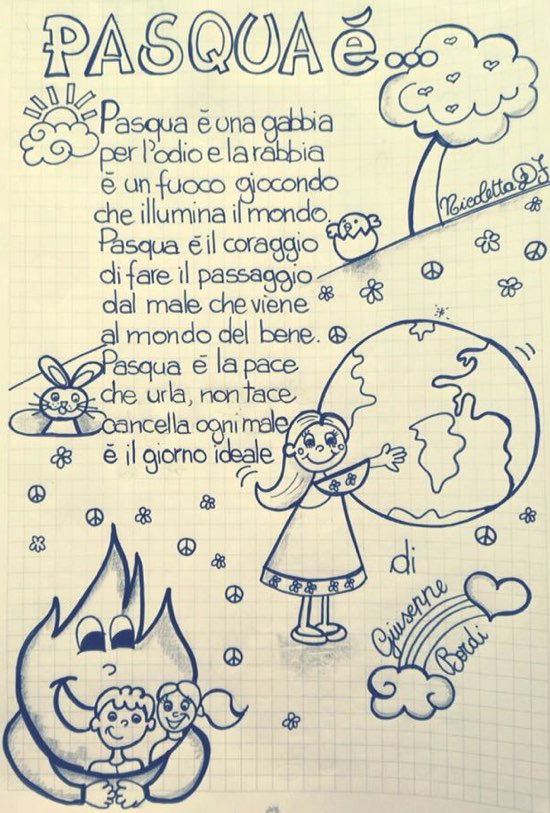 PASQUA è...
Pasqua è una gabbia
per l'odio e la rabbia
è un fuoco giocondo
che illumina il mondo.
Pasqua è il coraggio
di fare il passaggio
dal male che viene
al mondo del bene.
Pasqua è la pace
che urla, non tace
cancella ogni male
è il giorno ideale
Nicoletta DJ
di
Giuseppe
Bordi